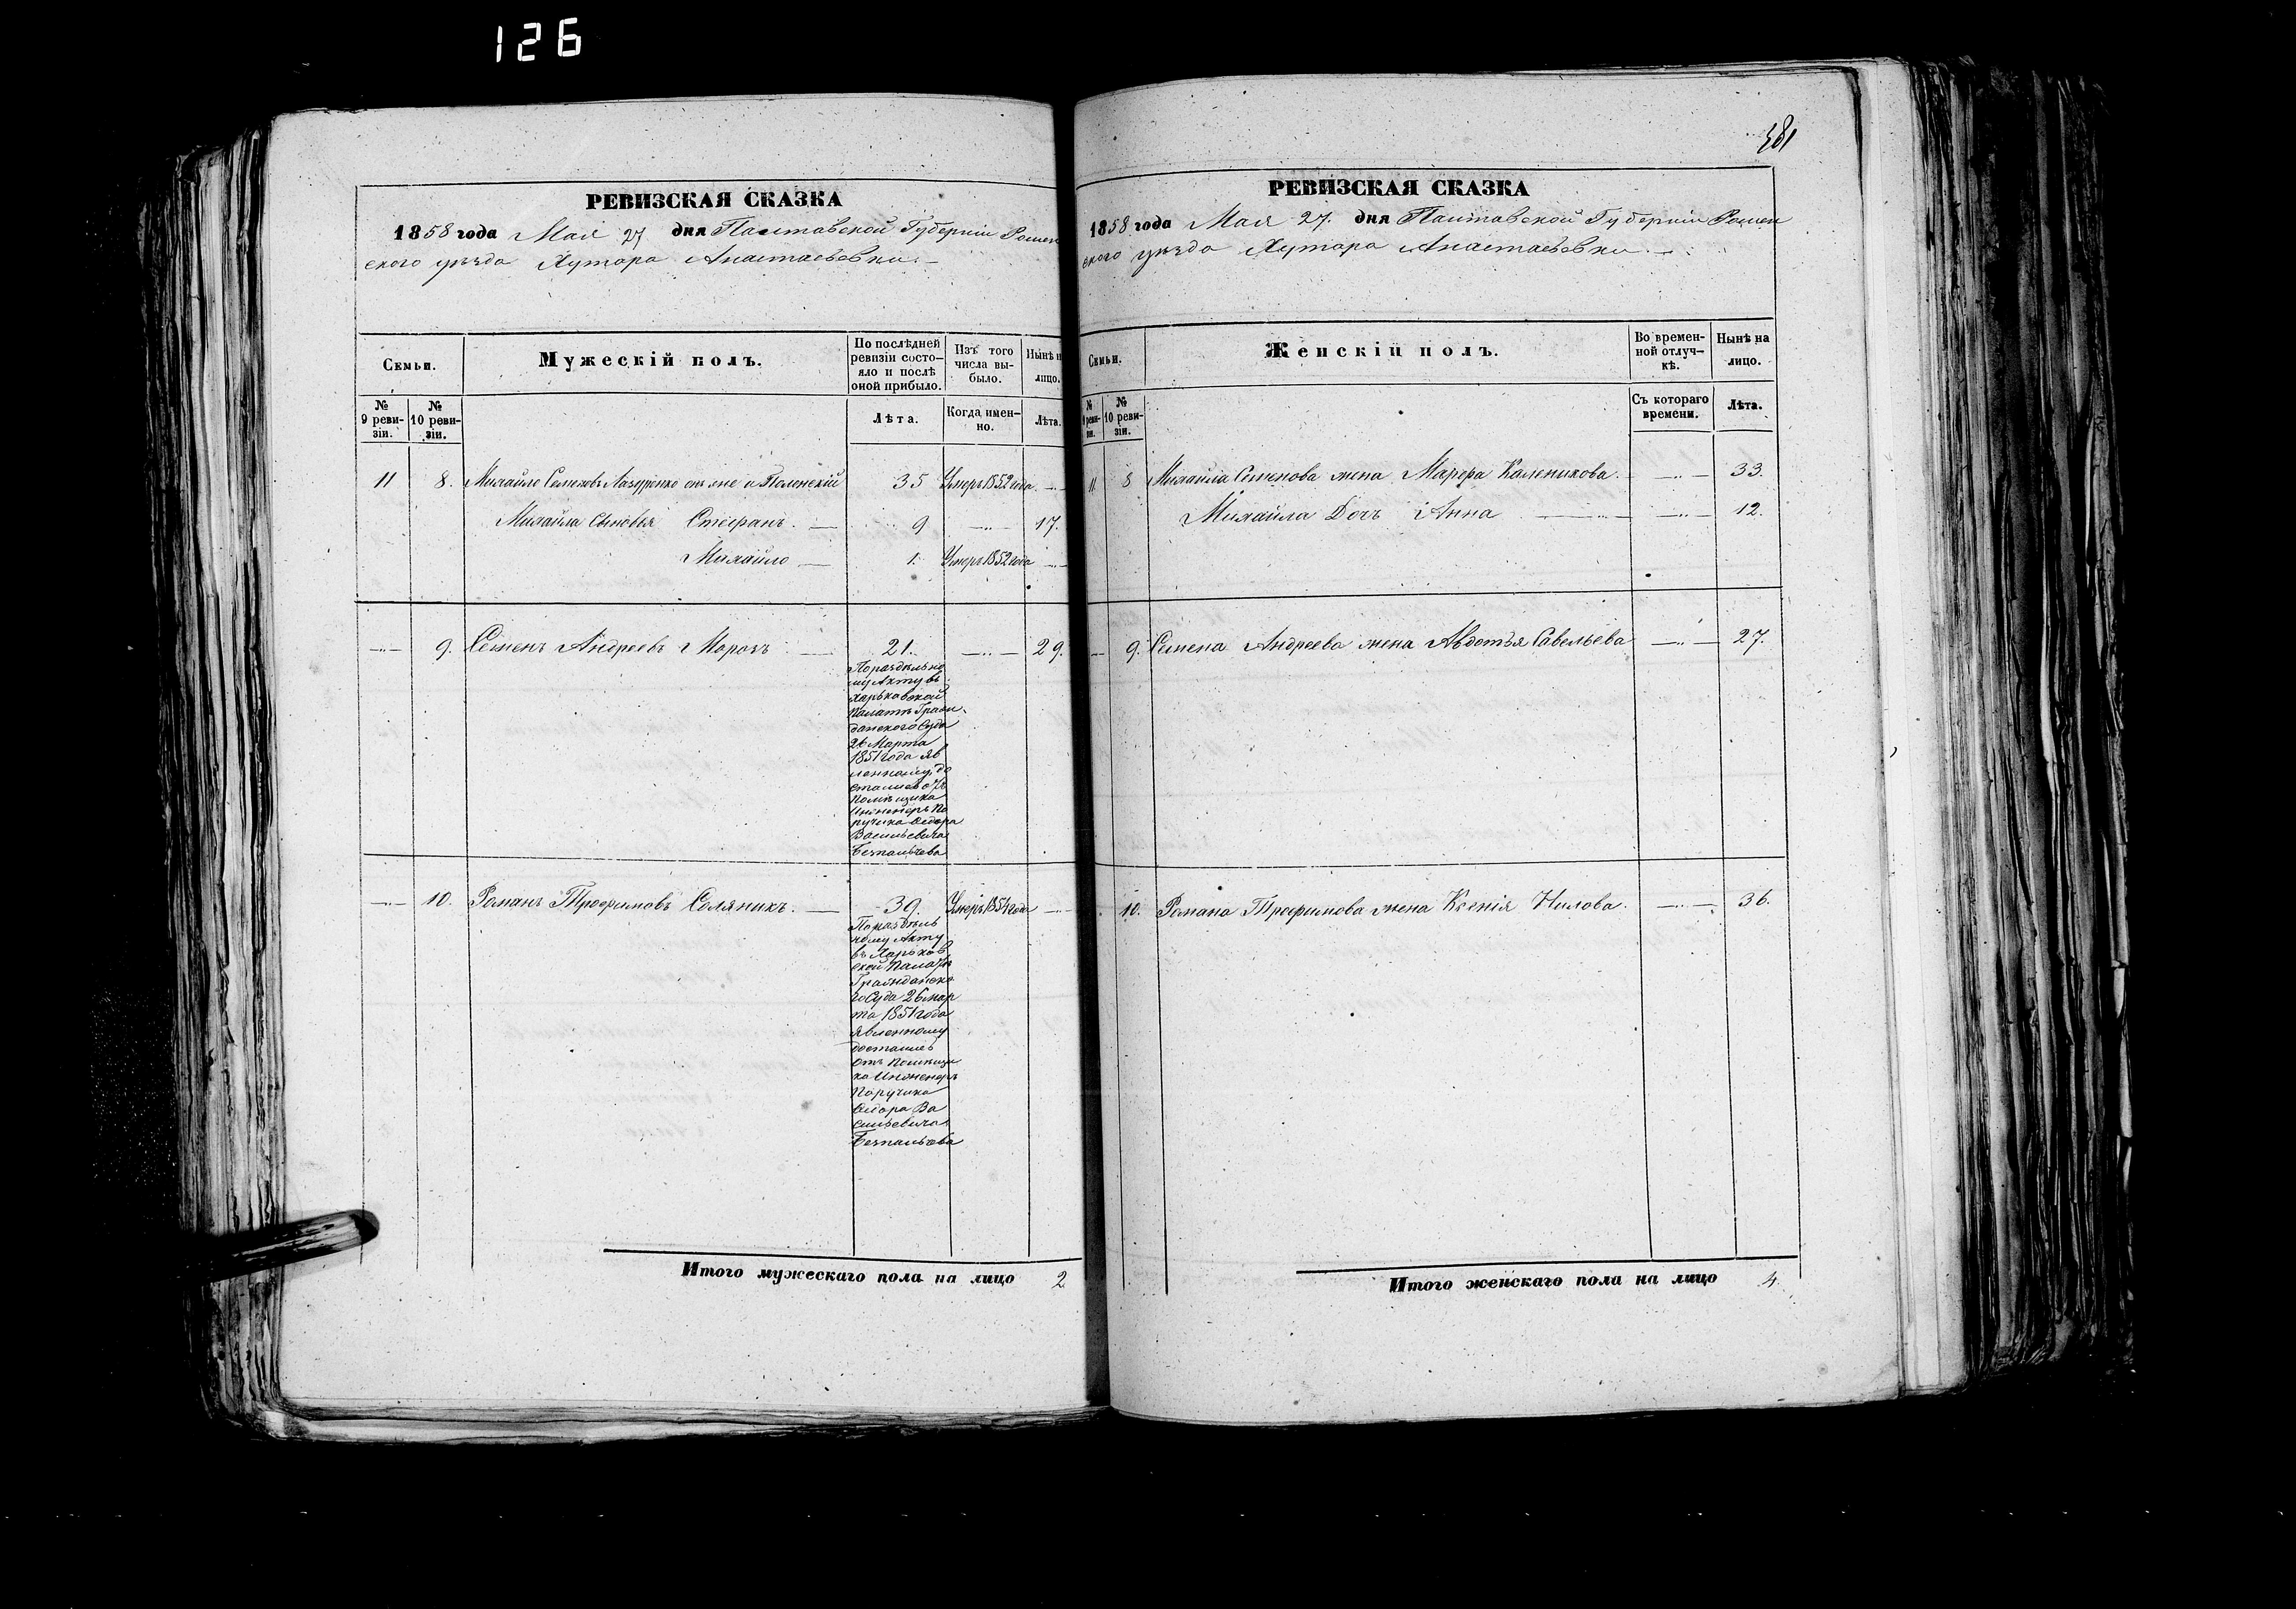 126
РЕВИЗСКАЯ СКАЗКА
1858 года Мая 27 дня Палтавской Губерніи Ромен
ского уѣзда Хутора Анастасьевки
Семьи.
Мужескій полъ.
По послѣдней ревизіи состояло и послѣ оной прибыло.
Изъ того числа выбыло.
Нынѣ н лицо.
№ 9 ревизіи.
№ 10 ревизіи.
Лѣта.
Когда именно.
Лѣта.
11 8. Михайло Семеновъ Лазуренко онъ же и Полинскій 35 Умеръ 1852 года
Михайла Сыновья Стефанъ. 9 17.
Михайло 1. Умеръ 1852 года
9. Семенъ Андреевъ Морозъ 21. 29.
По раздѣльно
му Акту въ
Харьковской
Палатѣ Граж
данского Суда
26 Марта
1851 года яв
ленному, до
стались отъ
Помѣщика
Инженеръ По
ручика Федора
Васильевича
Безпальчева
10. Романъ Трофимовъ Соляникъ. 39. Умеръ 1854 года
По раздѣль
ному Акту
въ Харьков
ской Палатѣ
Гражданско
го Суда 26 мар
та 1851 года
явленному
достались
отъ Помѣщи
ка Инженеръ
Поручика
Федора Ва
сильевича
Безпальчева
Итого мужескаго пола на лицо 2
381
РЕВИЗСКАЯ СКАЗКА
1858 года Мая 27 дня Палтавской Губерніи Ромен
ского уѣзда Хутора Анастасьевки
Семьи.
Женскій полъ.
Во временной отлучкѣ.
Нынѣ на лицо.
№ 9 ревизіи.
№ 10 ревизіи.
Съ котораго времени.
Лѣта.
11 8 Михайла Семенова жена Марфа Каленикова. 33.
Михайла Дочь Анна 12.
9. Семена Андреева жена Авдотья Савельева 27.
10. Романа Трофимова жена Ксенія Нилова. 36.
Итого женскаго пола на лицо 4.